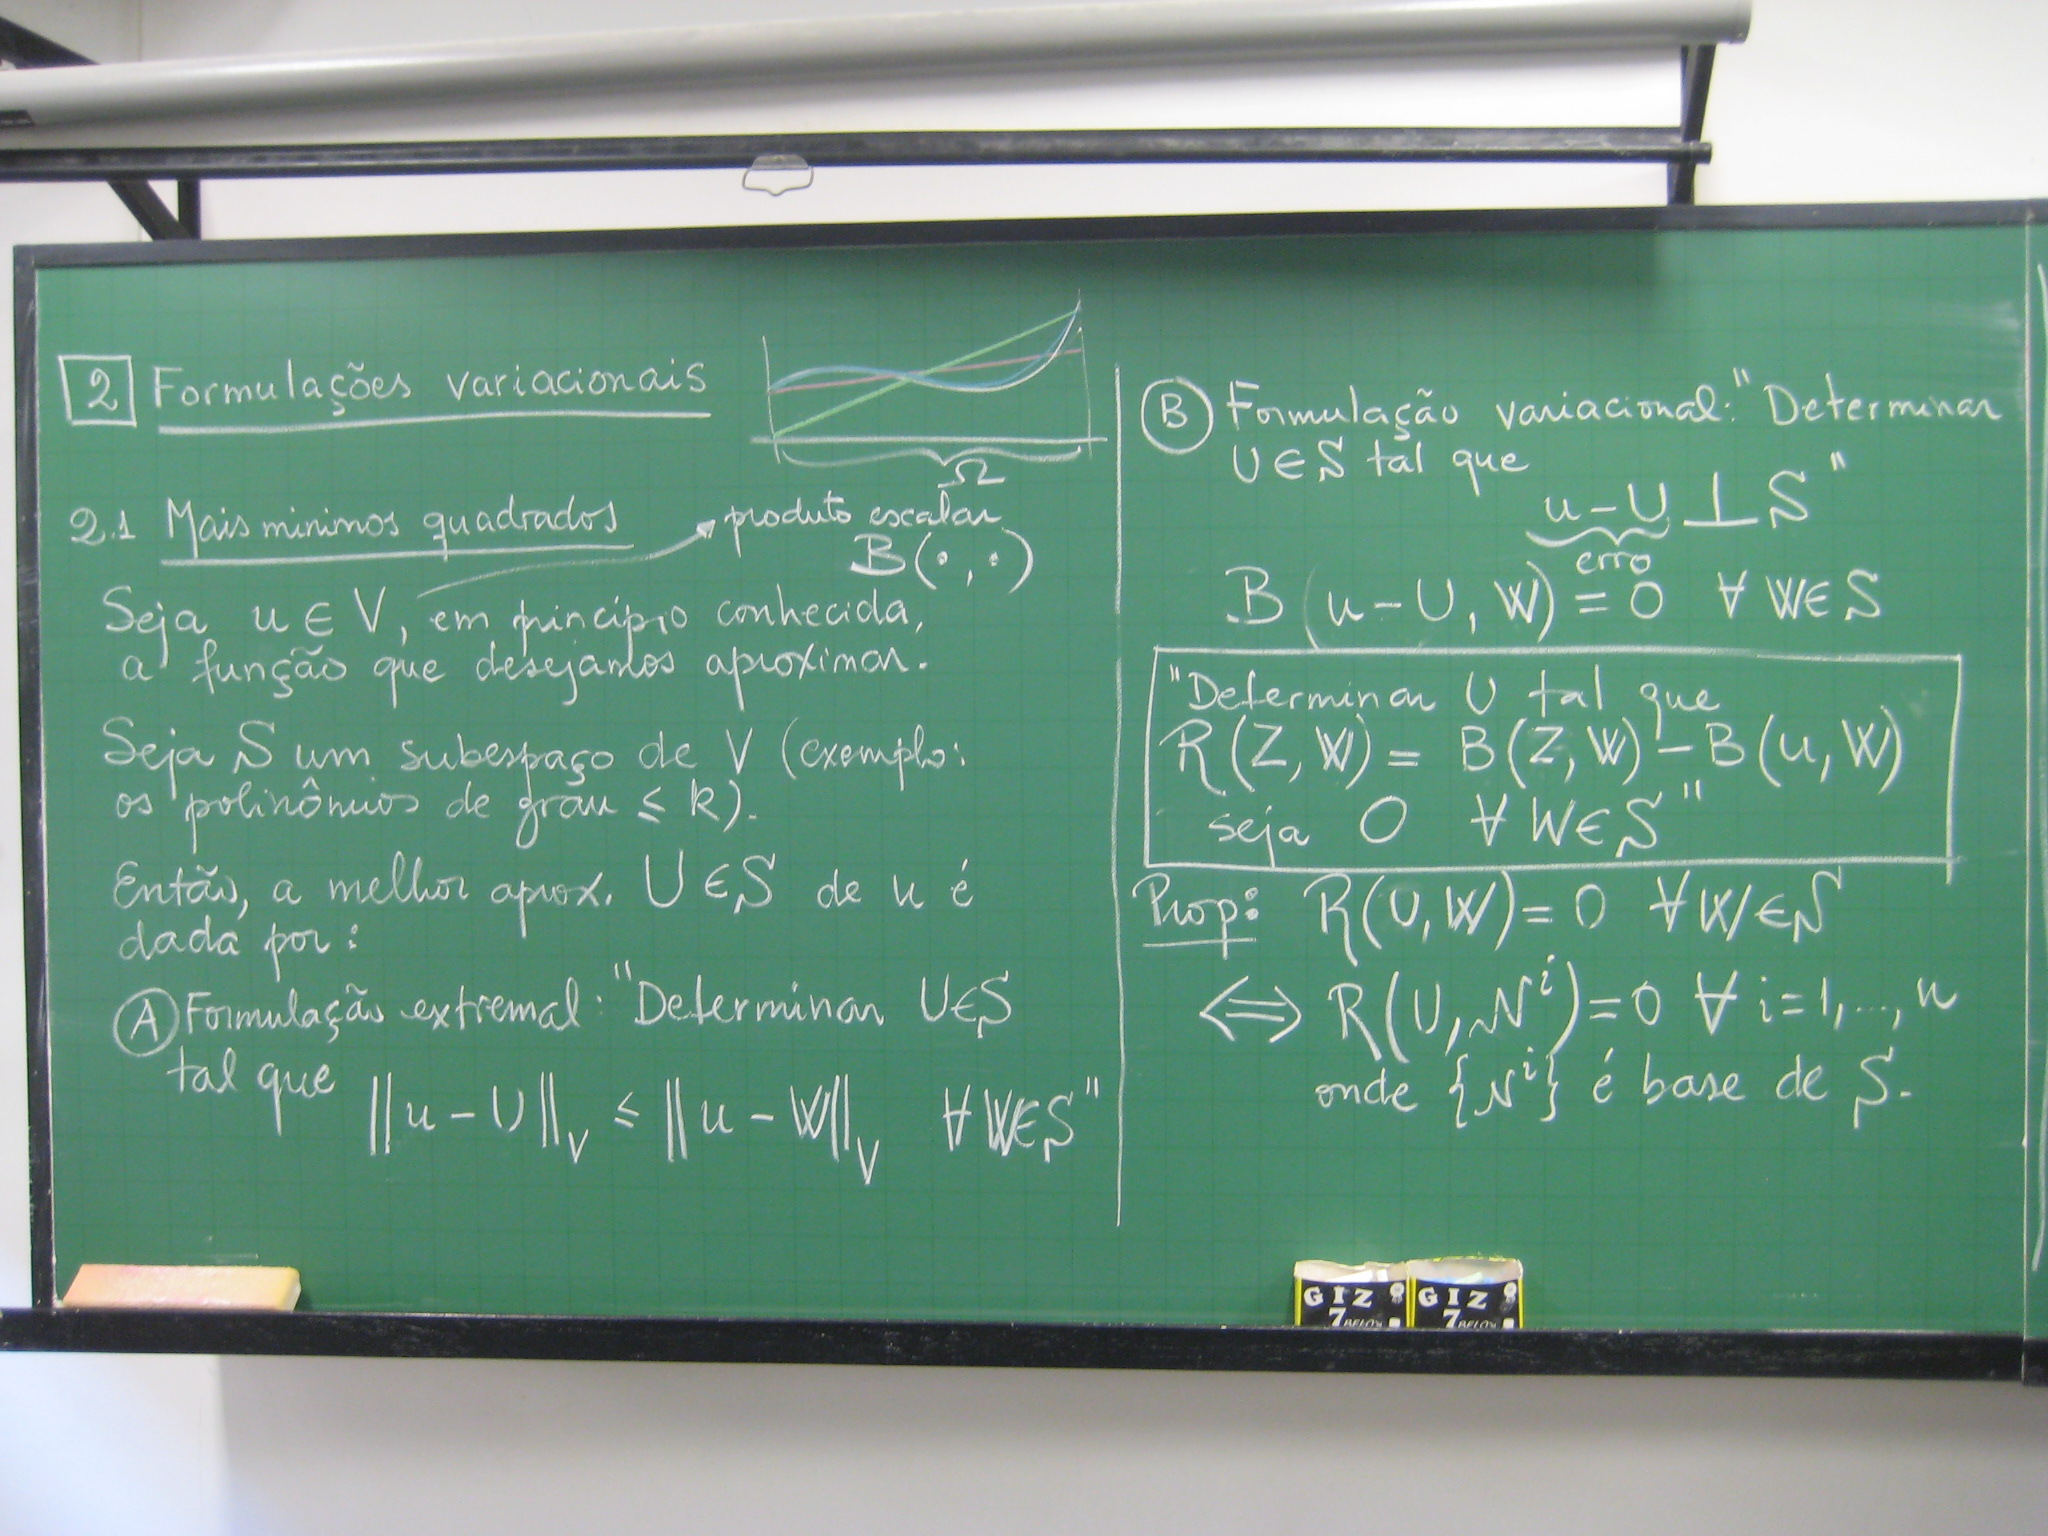 2 Formulações variacionais
Ω
2.1 Mais mínimos quadrados
produto escalar
B(·,·)
Seja u ∈ V, em princípio conhecida,
a função que desejamos aproximar.
Seja S um subespaço de V (exemplo:
os polinômios de grau ≤ k).
Então, a melhor aprox. U ∈ S de u é
dada por:
A Formulação extremal: "Determinar U∈S
tal que
||u - U||_V ≤ ||u - W||_V ∀ W∈S"
B Formulação variacional: "Determinar
U∈S tal que
u - U ⊥ S"
erro
B(u - U, W) = 0 ∀ W∈S
"Determinar U tal que
R(Z, W) = B(Z, W) - B(u, W)
seja 0 ∀ W∈S"
Prop: R(U, W) = 0 ∀ W ∈ S
⟺ R(U, N^i) = 0 ∀ i=1,...,n
onde {N^i} é base de S.
GIZ
7 BELO
GIZ
7 BELO